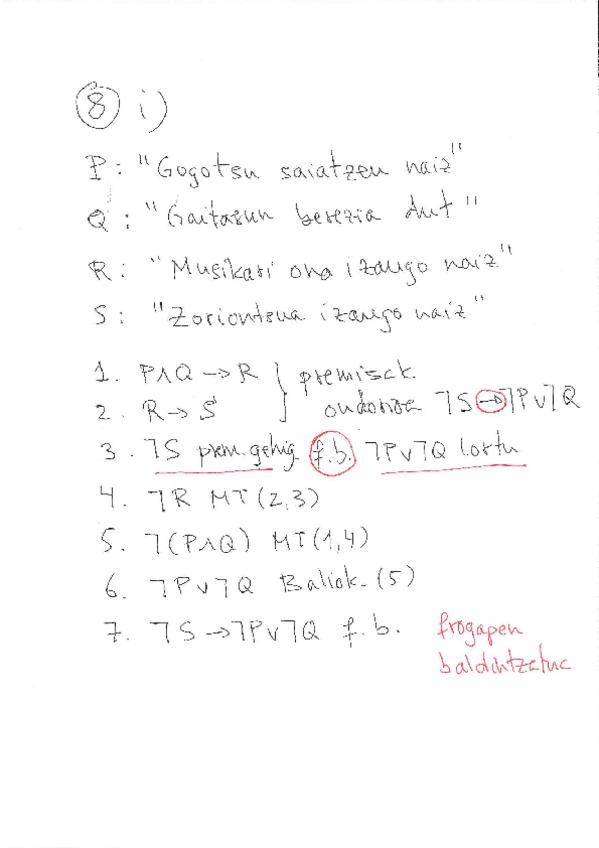 8 i)
P: "Gogotsu saiatzen naiz"
Q: "Gaitasun berezia dut"
R: "Musikari ona izango naiz"
S: "Zoriontsua izango naiz"
1. P∧Q → R } premisak
2. R → S ondorioa ¬S → ¬P∨¬Q
3. ¬S prem. gehig. f.b. ¬P∨¬Q lortu
4. ¬R MT (2,3)
5. ¬(P∧Q) MT (1,4)
6. ¬P∨¬Q Baliok. (5)
7. ¬S → ¬P∨¬Q f.b. frogapen
baldintzatua